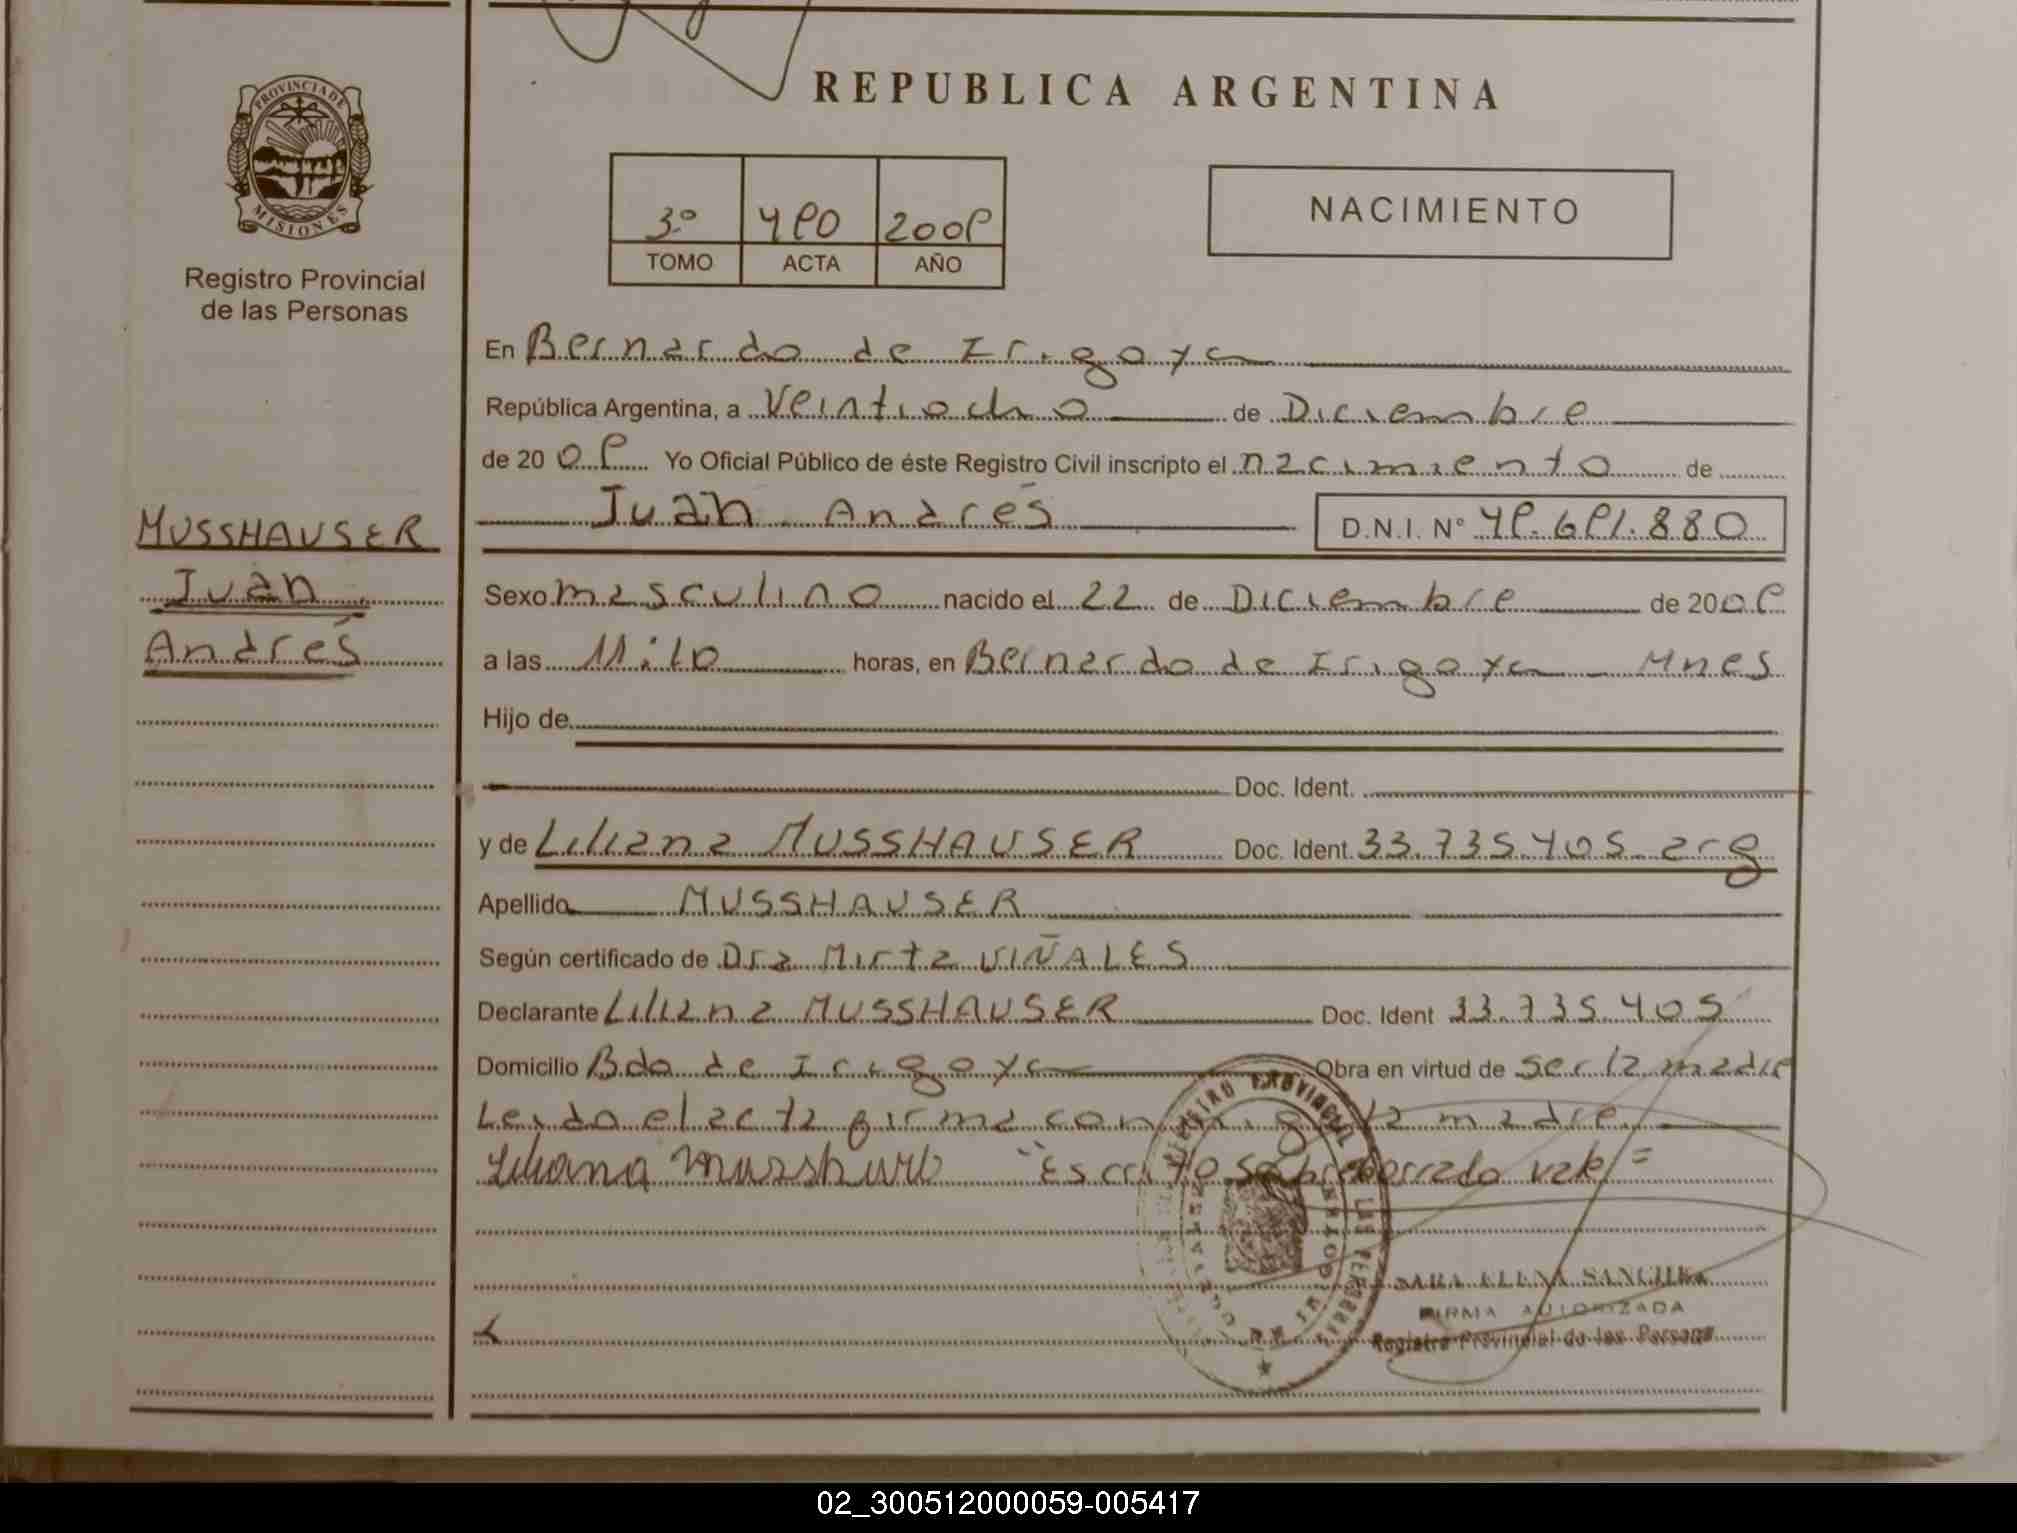 REPUBLICA ARGENTINA
PROVINCIA DE
MISIONES
Registro Provincial
de las Personas
3º 490 2009
TOMO ACTA AÑO
NACIMIENTO
En Bernardo de Irigoyen
República Argentina, a Veintiocho de Diciembre
de 20 09 Yo Oficial Público de éste Registro Civil inscripto el nacimiento de
Juan Andrés D.N.I. Nº 49.691.880
MUSSHAUSER
Juan
Andrés
Sexo masculino nacido el 22 de Diciembre de 2009
a las 11:10 horas, en Bernardo de Irigoyen Mnes
Hijo de
Doc. Ident.
y de Liliana MUSSHAUSER Doc. Ident. 33.735.405 arg
Apellido MUSSHAUSER
Según certificado de Dra Mirta VIÑALES
Declarante Liliana MUSSHAUSER Doc. Ident 33.735.405
Domicilio Bdo de Irigoyen Obra en virtud de ser la madre
Leido el acta firma conmigo la madre
Liliana "Escrito sobreborrado vale"=
REGISTRO PROVINCIAL DE LAS PERSONAS
SARA ELENA SANCHEZ
FIRMA AUTORIZADA
Registro Provincial de las Personas
02_300512000059-005417